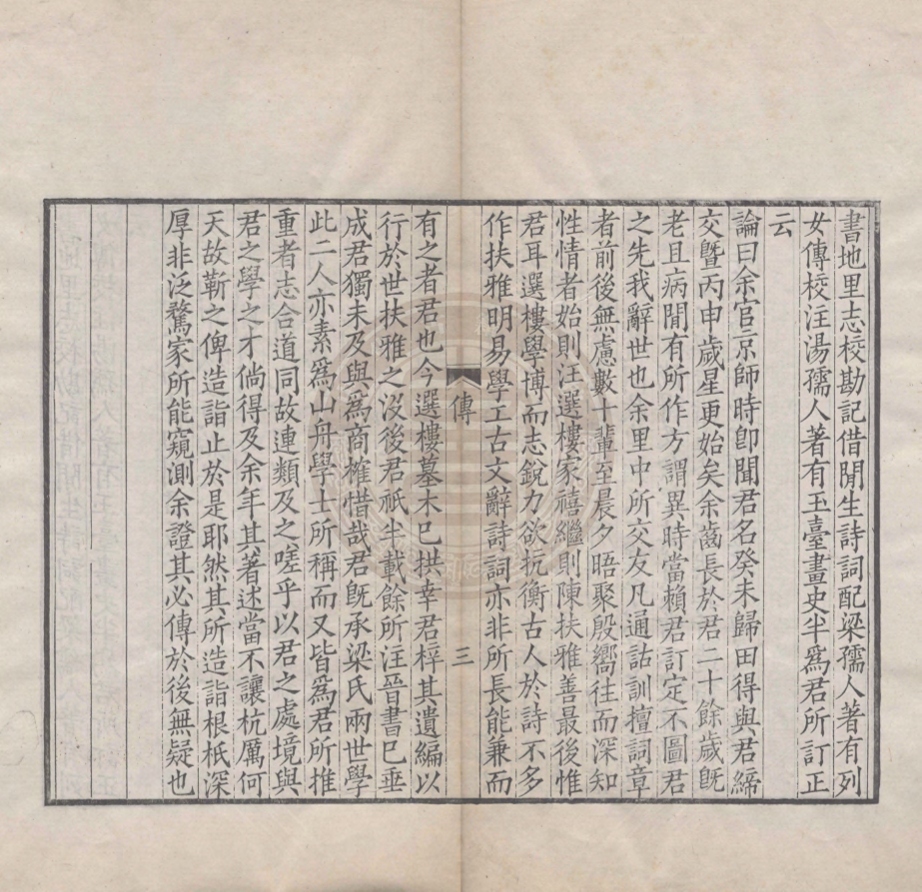 書地里志校勘記借閒生詩詞配梁孺人著有列
女傳校注湯孺人著有玉臺畫史半爲君所訂正
云
論曰余官京師時卽聞君名癸未歸田得與君締
交暨丙申歲星更始矣余齒長於君二十餘歲旣
老且病閒有所作方謂異時當賴君訂定不圖君
之先我辭世也余里中所交友凡通詁訓擅詞章
者前後無慮數十輩至晨夕晤聚殷嚮往而深知
性情者始則汪選樓家禧繼則陳扶雅善最後惟
君耳選樓學博而志銳力欲抗衡古人於詩不多
作扶雅明易學工古文辭詩詞亦非所長能兼而
傳
三
有之者君也今選樓墓木已拱幸君梓其遺編以
行於世扶雅之沒後君祇半載餘所注晉書已垂
成君獨未及與爲商榷惜哉君旣承梁氏兩世學
此二人亦素爲山舟學士所稱而又皆爲君所推
重者志合道同故連類及之嗟乎以君之處境與
君之學之才倘得及余年其著述當不讓杭厲何
天故靳之俾造詣止於是耶然其所造詣根柢深
厚非泛騖家所能窺測余證其必傳於後無疑也